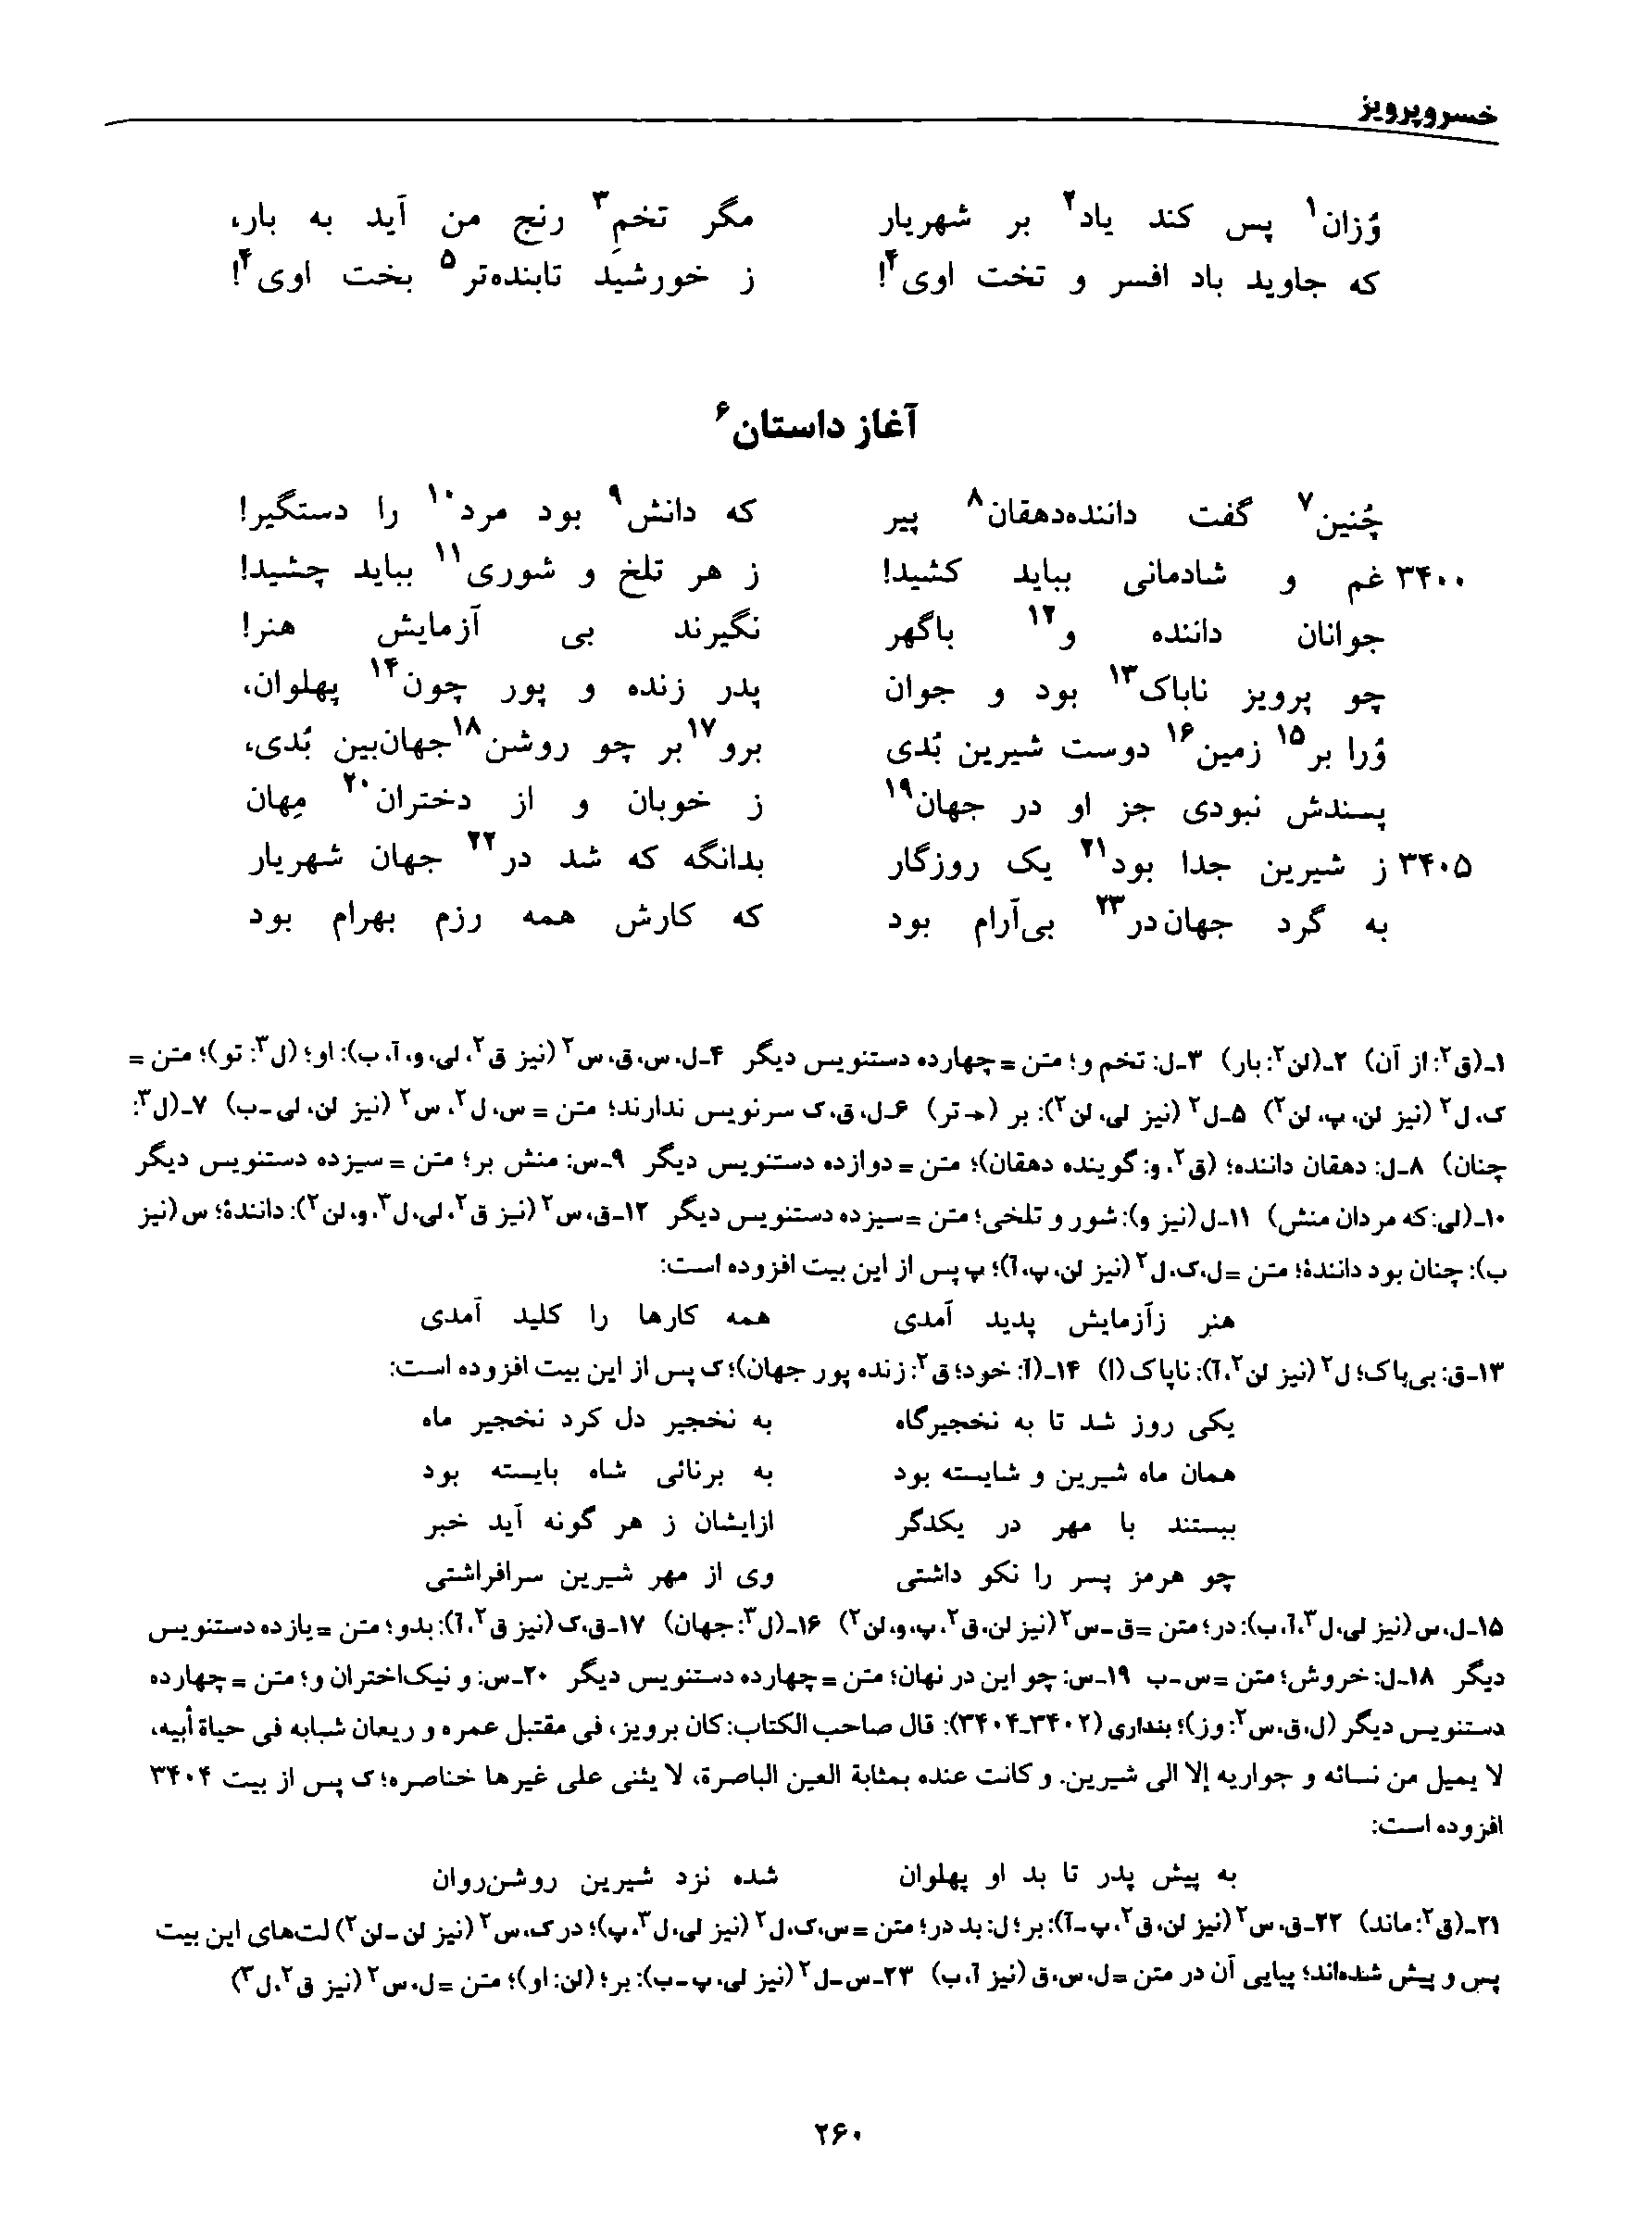 خسروپرویز
وُزان۱ پس کند یاد۲ بر شهریار مگر تخمِ۳ رنج من آید به بار،
که جاوید باد افسر و تخت اوی۴! ز خورشید تابنده‌تر۵ بخت اوی۴!
آغاز داستان۶
چُنین۷ گفت داننده‌دهقان۸ پیر که دانش۹ بود مرد۱۰ را دستگیر!
۳۴۰۰ غم و شادمانی بباید کشید! ز هر تلخ و شوری۱۱ بباید چشید!
جوانان داننده و۱۲ باگهر نگیرند بی آزمایش هنر!
چو پرویز ناباک۱۳ بود و جوان پدر زنده و پور چون۱۴ پهلوان،
وُرا بر۱۵ زمین۱۶ دوست شیرین بُدی برو۱۷بر چو روشن۱۸جهان‌بین بُدی،
پسندش نبودی جز او در جهان۱۹ ز خوبان و از دختران۲۰ مِهان
۳۴۰۵ ز شیرین جدا بود۲۱ یک روزگار بدانگه که شد در۲۲ جهان شهریار
به گرد جهان‌در۲۳ بی‌آرام بود که کارش همه رزم بهرام بود
۱ـ(ق۲: از آن) ۲ـ(لن۲: بار) ۳ـل: تخم و؛ متن = چهارده دستنویس دیگر ۴ـل، س، ق، س۲ (نیز ق۲، لی، و، آ، ب): او؛ (ل۳: تو)؛ متن =
ک، ل۲ (نیز لن، پ، لن۲) ۵ـل۲ (نیز لی، لن۲): بر (← تر) ۶ـل، ق، ک سرنویس ندارند؛ متن = س، ل۲، س۲ (نیز لن، لی ـ ب) ۷ـ(ل۳:
چنان) ۸ـل: دهقان داننده؛ (ق۲، و: گوینده دهقان)؛ متن = دوازده دستنویس دیگر ۹ـس: منش بر؛ متن = سیزده دستنویس دیگر
۱۰ـ(لی: که مردان منش) ۱۱ـل (نیز و): شور و تلخی؛ متن = سیزده دستنویس دیگر ۱۲ـق، س۲ (نیز ق۲، لی، ل۳، و، لن۲): دانندهٔ؛ س (نیز
ب): چنان بود دانندهٔ؛ متن = ل، ک، ل۲ (نیز لن، پ، آ)؛ پ پس از این بیت افزوده است:
هنر زآزمایش پدید آمدی همه کارها را کلید آمدی
۱۳ـق: بی‌باک؛ ل۲ (نیز لن۲، آ): ناپاک (ا) ۱۴ـ(آ: خود؛ ق۲: زنده پور جهان)؛ ک پس از این بیت افزوده است:
یکی روز شد تا به نخجیرگاه به نخجیر دل کرد نخجیر ماه
همان ماه شیرین و شایسته بود به برنائی شاه بایسته بود
ببستند با مهر در یکدگر ازایشان ز هر گونه آید خبر
چو هرمز پسر را نکو داشتی وی از مهر شیرین سرافراشتی
۱۵ـل، س (نیز لی، ل۳، آ، ب): در؛ متن = ق ـ س۲ (نیز لن، ق۲، پ، و، لن۲) ۱۶ـ(ل۳: جهان) ۱۷ـق، ک (نیز ق۲، آ): بدو؛ متن = یازده دستنویس
دیگر ۱۸ـل: خروش؛ متن = س ـ ب ۱۹ـس: چو این در نهان؛ متن = چهارده دستنویس دیگر ۲۰ـس: و نیک‌اختران و؛ متن = چهارده
دستنویس دیگر (ل، ق، س۲: وز)؛ بنداری (۳۴۰۲ـ۳۴۰۴): قال صاحب الکتاب: کان برویز، فی مقتبل عمره و ریعان شبابه فی حیاة أبیه،
لا یمیل من نسائه و جواریه إلا الی شیرین. و کانت عنده بمثابة العین الباصرة، لا یثنی علی غیرها خناصره؛ ک پس از بیت ۳۴۰۴
افزوده است:
به پیش پدر تا بد او پهلوان شده نزد شیرین روشن‌روان
۲۱ـ(ق۲: ماند) ۲۲ـق، س۲ (نیز لن، ق۲، پ ـ آ): بر؛ ل: بد در؛ متن = س، ک، ل۲ (نیز لی، ل۳، ب)؛ در ک، س۲ (نیز لن ـ لن۲) لت‌های این بیت
پس و پیش شده‌اند؛ پیایی آن در متن = ل، س، ق (نیز آ، ب) ۲۳ـس ـ ل۲ (نیز لی، پ ـ ب): بر؛ (لن: او)؛ متن = ل، س۲ (نیز ق۲، ل۳)
۲۶۰